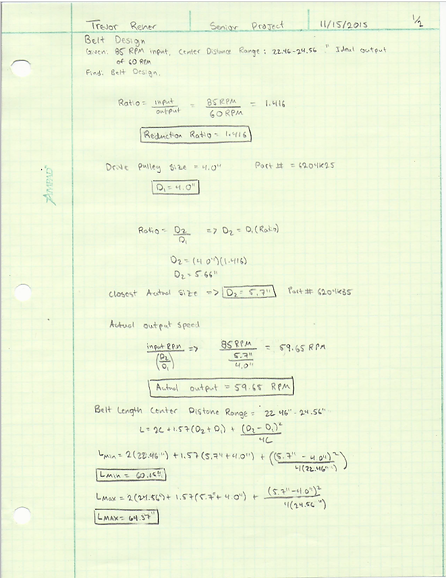 Trevor Rener Senior Project 11/15/2015 1/2
Belt Design
Given: 85 RPM input, Center Distance Range: 22.46-24.56" Ideal output
of 60 RPM
Find: Belt Design.
Ratio = input/output = 85RPM/60RPM = 1.416
Reduction Ratio = 1.416
Drive Pulley Size = 4.0" Part # = 6204K25
D₁ = 4.0"
Ratio = D₂/D₁ => D₂ = D₁(Ratio)
D₂ = (4.0")(1.416)
D₂ = 5.66"
Closest Actual Size => D₂ = 5.7" Part #: 6204K35
Actual output speed
input RPM/(D₂/D₁) => 85RPM/(5.7"/4.0") = 59.65 RPM
Actual output = 59.65 RPM
Belt Length Center Distance Range: 22.46" - 24.56"
L = 2C + 1.57(D₂ + D₁) + (D₂ - D₁)²/4C
Lmin = 2(22.46") + 1.57(5.7" + 4.0") + ((5.7" - 4.0")²/4(22.46"))
Lmin = 60.15"
Lmax = 2(24.56") + 1.57(5.7" + 4.0") + (5.7" - 4.0")²/4(24.56")
Lmax = 64.37"